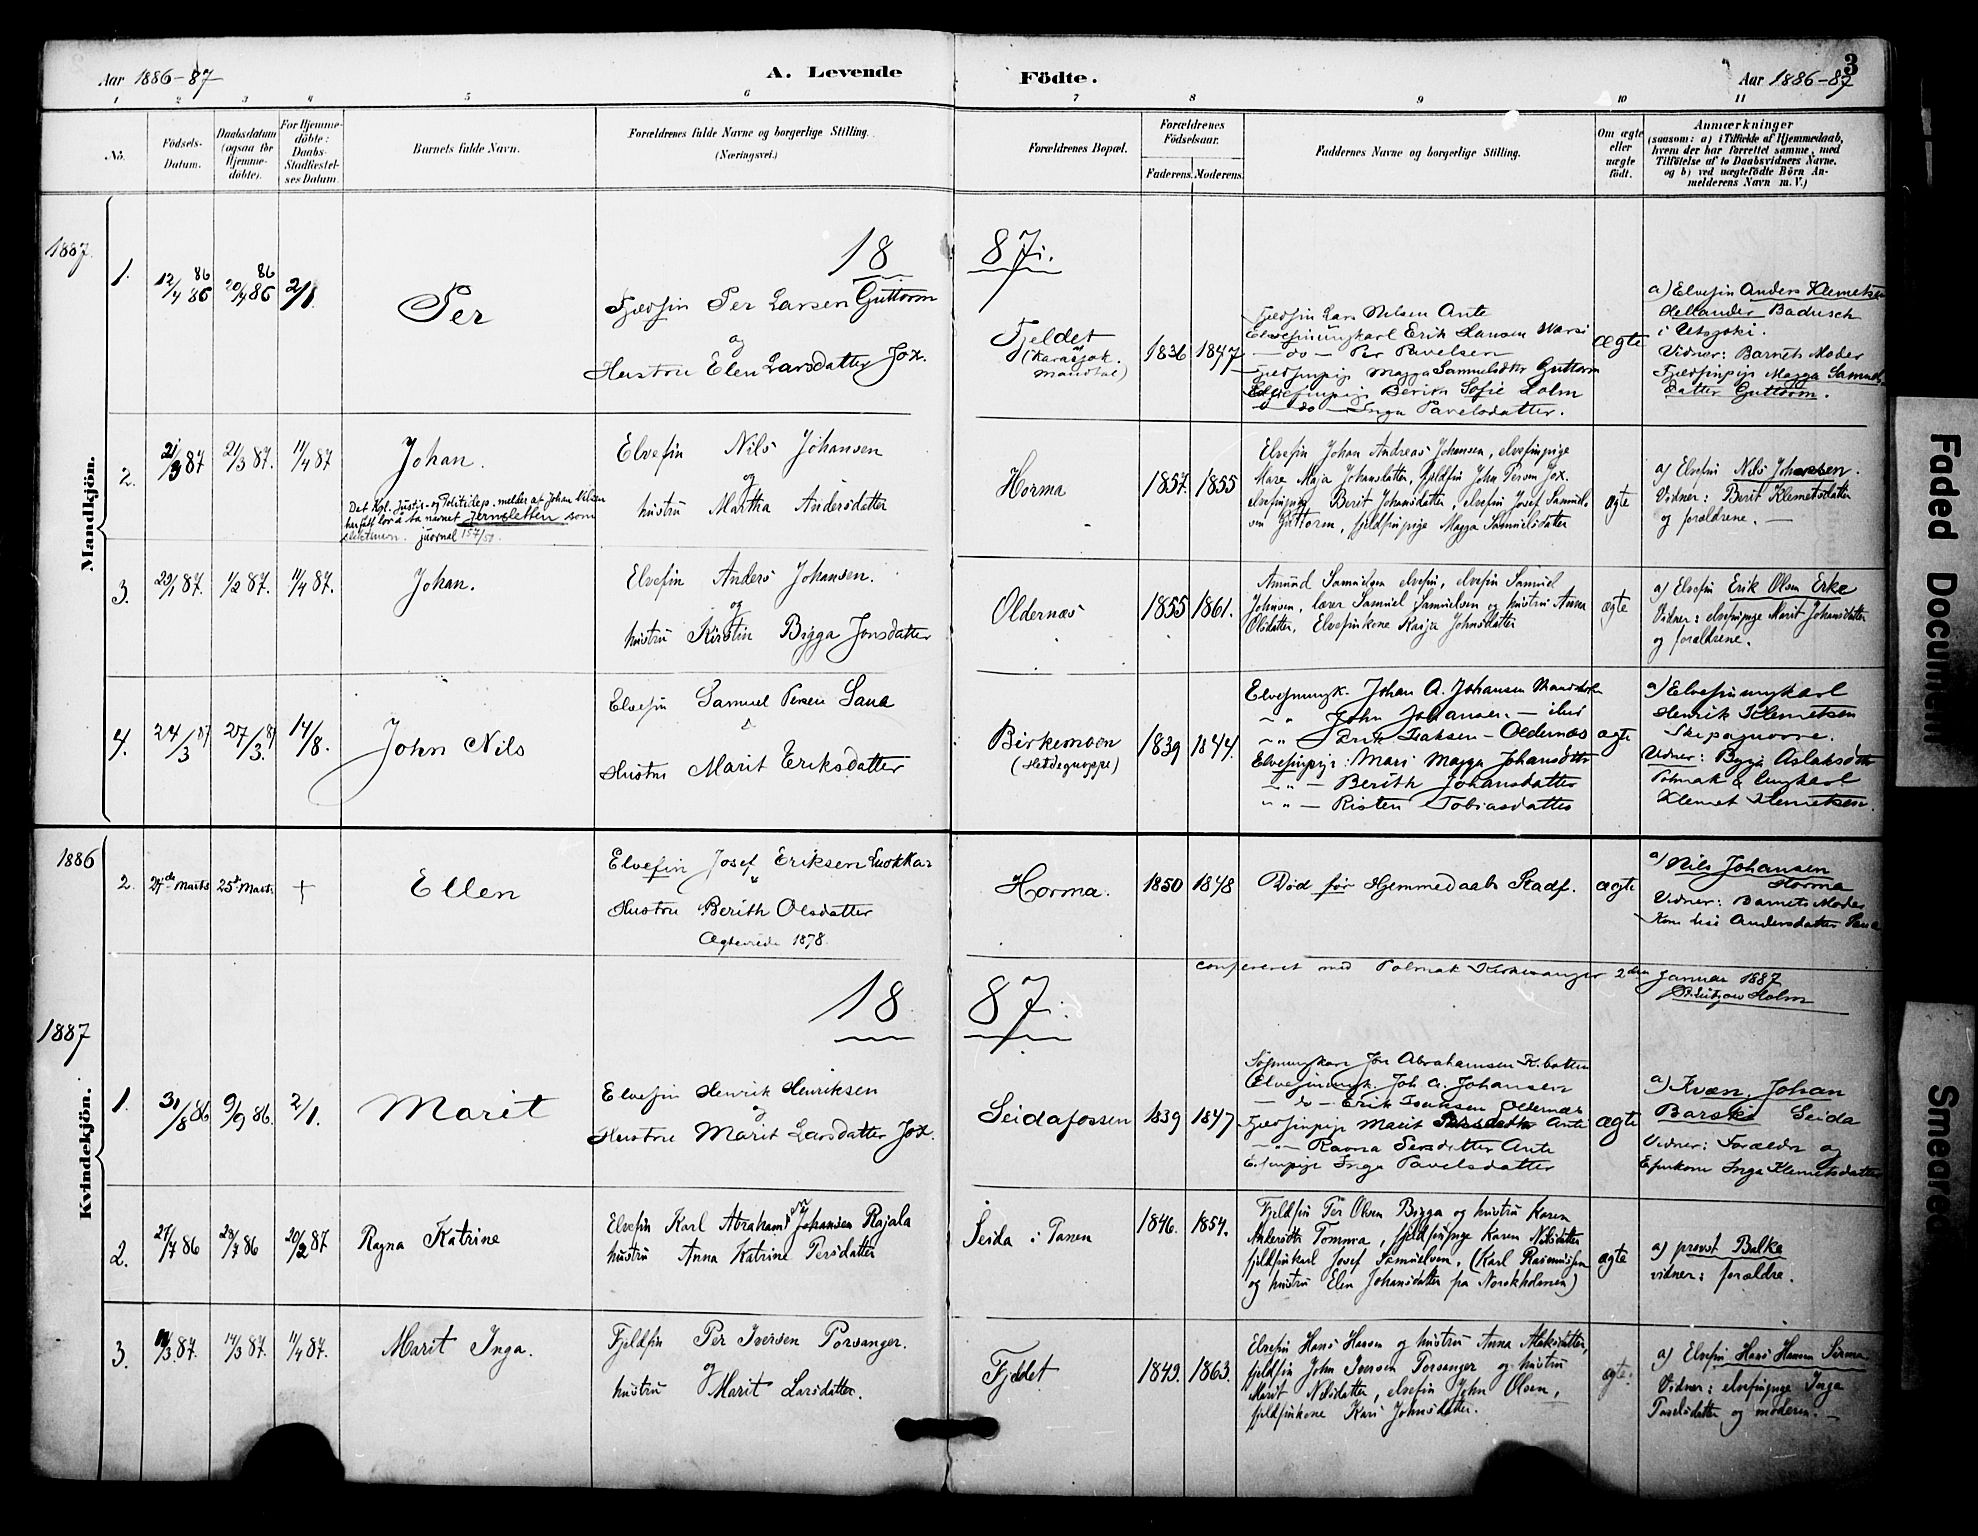 Aar 1886-87
A. Levende
Födte.
Aar 1886-87
3
1 2 3 4 5 6 7 8 9 10 11
No.
Födsels-
Datum.
Daabsdatum
(ogsaa for
Hjemme-
döbte).
For Hjemme-
döbte:
Daabs-
Stadfæstel-
ses Datum.
Barnets fulde Navn.
Forældrenes fulde Navne og borgerlige Stilling.
(Næringsvei.)
Forældrenes Bopæl.
Forældrenes
Födselsaar.
Faderens. Moderens.
Faddernes Navne og borgerlige Stilling.
Om ægte
eller
uægte
födt.
Anmærkninger
(saasom: a) i Tilfælde af Hjemmedaab,
hvem der har forrettet samme, med
Tilföielse af to Daabsvidners Navne,
og b) ved uægtefödte Börn An-
melderens Navn m. V.)
Mandkjön.
1887.
18 87.
1.
12/4 86
86
20/4 86
86
2/1.
Per
Fjeldfin Per Larsen Guttorm
og
Hustru Elen Larsdatter Jox.
Fjeldet
(Karasjok
mandtal)
1836 1847
Fjeldfin Lars Nilsen Ante
Elvefinungkarl Erik Hansen Warsi
- do - Per Pavelsen
Fjeldfinpige Magga Samuelsdtr Guttorm
Elvefinpige Berith Sofie Holm
- do - Inga Pavelsdatter.
ægte
a) Elvefin Anders Klemetsen
Hellander Badusch
i Utsjoki.
Vidner: Barnets Moder
Fjeldfinpige Magga Samuels
Datter Guttorm.
2.
21/3 87
21/3 87.
11/4 87
Johan.
Det Kgl. Justis- og Politidep. melder at Johan Nilsen
har fått lov å ta navnet Jernsletten som
slektnavn. journal 157/50.
Elvefin Nils Johansen
og
hustru Martha Andersdatter
Horma
1857. 1855
Elvefin Johan Andreas Johansen, elvefinpige
Mare Maja Johansdatter, fjeldfin John Persen Jox.
elvefinpige Berit Johansdatter, elvefin Josef Samuel-
sen Guttorm, fjeldfinpige Magga Samuelsdatter
ægte
a) Elvefin Nils Johansen.
Vidner: Berit Klemetsdatter
og forældrene. —
3.
29/1 87.
1/2 87.
11/4 87.
Johan.
Elvefin Anders Johansen.
og
hustru Kirstin Bigga Jonsdatter
Oldernæs
1855 1861.
Amund Samuelsen elvefin, elvefin Samuel
Johnsen, lærer Samuel Samuelsen og hustru Anna
Olsdatter, Elvefinkone Kaija Johnsdatter
ægte
a) Elvefin Erik Olsen Erke
Vidner: elvefinpige Marit Johansdatter
og forældrene.
4.
24/3 87
27/3. 87
14/8.
John Nils
Elvefin Samuel Persen Saua
Hustru Marit Eriksdatter
Birkemoen
1839 1844.
Elvefinungk. Johan A. Johansen
John Johansen
Erik Isaksen - Oldernæs
Elvefinpige: Mari Magga Johansdtr
- Berith Johansdatter
- Risten Tobiasdatter
ægte
a) Elvefinungkarl
Henrik Klemetsen
Skipagurra.
Vidner: Bigga Aslaksdtr
Polmak & Ungkarl
Klemet Klemetsen.
1886
2.
24de Marts
25d Marts
+
Ellen
Elvefin Josef Eriksen Luokka-
Hustru Berith Olsdatter
Ægteviede 1878.
Horma.
1850 1848
Död för Hjemmedaabs Stadf.
ægte
a) Nils Johansen
Horma
Vidner: Barnets Moder
Kone Lisi Andersdatter Saua
confereret med Polmak Kirkesanger 2den Januar 1887
Holm
Kvindekjön.
1887
18 87.
1.
31/8 86
9/9 86.
2/1.
Marit
Elvefin Henrik Henriksen
og
Hustru Marit Larsdatter Jox.
Seidafossen
1839 1847
Jon Abrahamsen
Elvefinungk. Joh A. Johansen
- do - Erik Isaksen Oldernæs
Fjeldfinpige Marit Persdattr Ante
- " - Ravna Persdatter Ante
E.finpige Inga Pavelsdatter
ægte
a) Kvæn. Johan
Barsk Seida
Vidner: Forældr og
E.finkone Inga Klemetsdatter
2.
27/7 86
28/7 86
20/2 87
Ragna Katrine
Elvefin Karl Abrahams Johansen Rajala
hustru Anna Katrine Persdatter
Seida i Tanen
1846. 1854.
Fjeldfin Per Olsen Bigga og hustru Karen
Andersdtr Tomma, fjeldfinpige Karen Nilsdatter
fjeldfinkarl Josef Samuelsen, (Karl Rasmussen
og hustru Elen Johansdatter fra Norskholmen)
ægte
a) provst Balke
vidner: forældre.
3.
3. 87.
14/3 87.
11/4 87.
Marit Inga.
Fjeldfin Per Iversen Porsanger.
og
hustru Marit Larsdatter.
Fjeldet
1849. 1863.
Elvefin Hans Hansen og hustru Anna Aslaksdatter,
fjeldfin John Iversen Porsanger og hustru
Marit Nilsdatter, elvefin John Olsen,
fjeldfinkone Kari Johnsdatter.
ægte.
a) Elvefin Hans Hansen Sirma.
Vidner: elvefinpige Inga
Pavelsdatter og moderen. —
Faded Document
Smeared